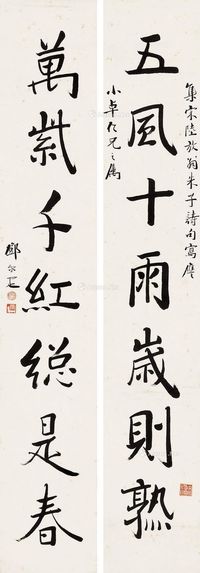 集宋陸放翁朱子詩句寫應
五風十雨歲則熟
小卓仁兄之屬
萬紫千紅總是春
鄧尔疋